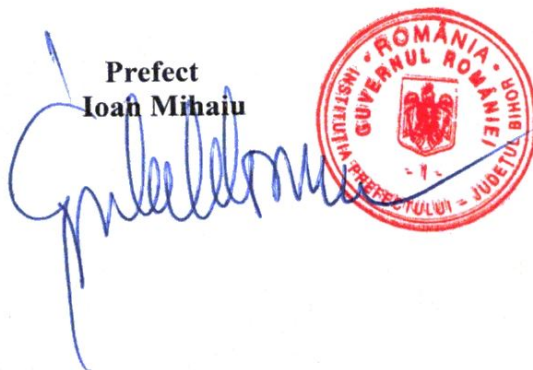 Prefect
Ioan Mihaiu
• ROMÂNIA •
GUVERNUL ROMÂNIEI
INSTITUȚIA PREFECTULUI - JUDEȚUL BIHOR
- 1 -